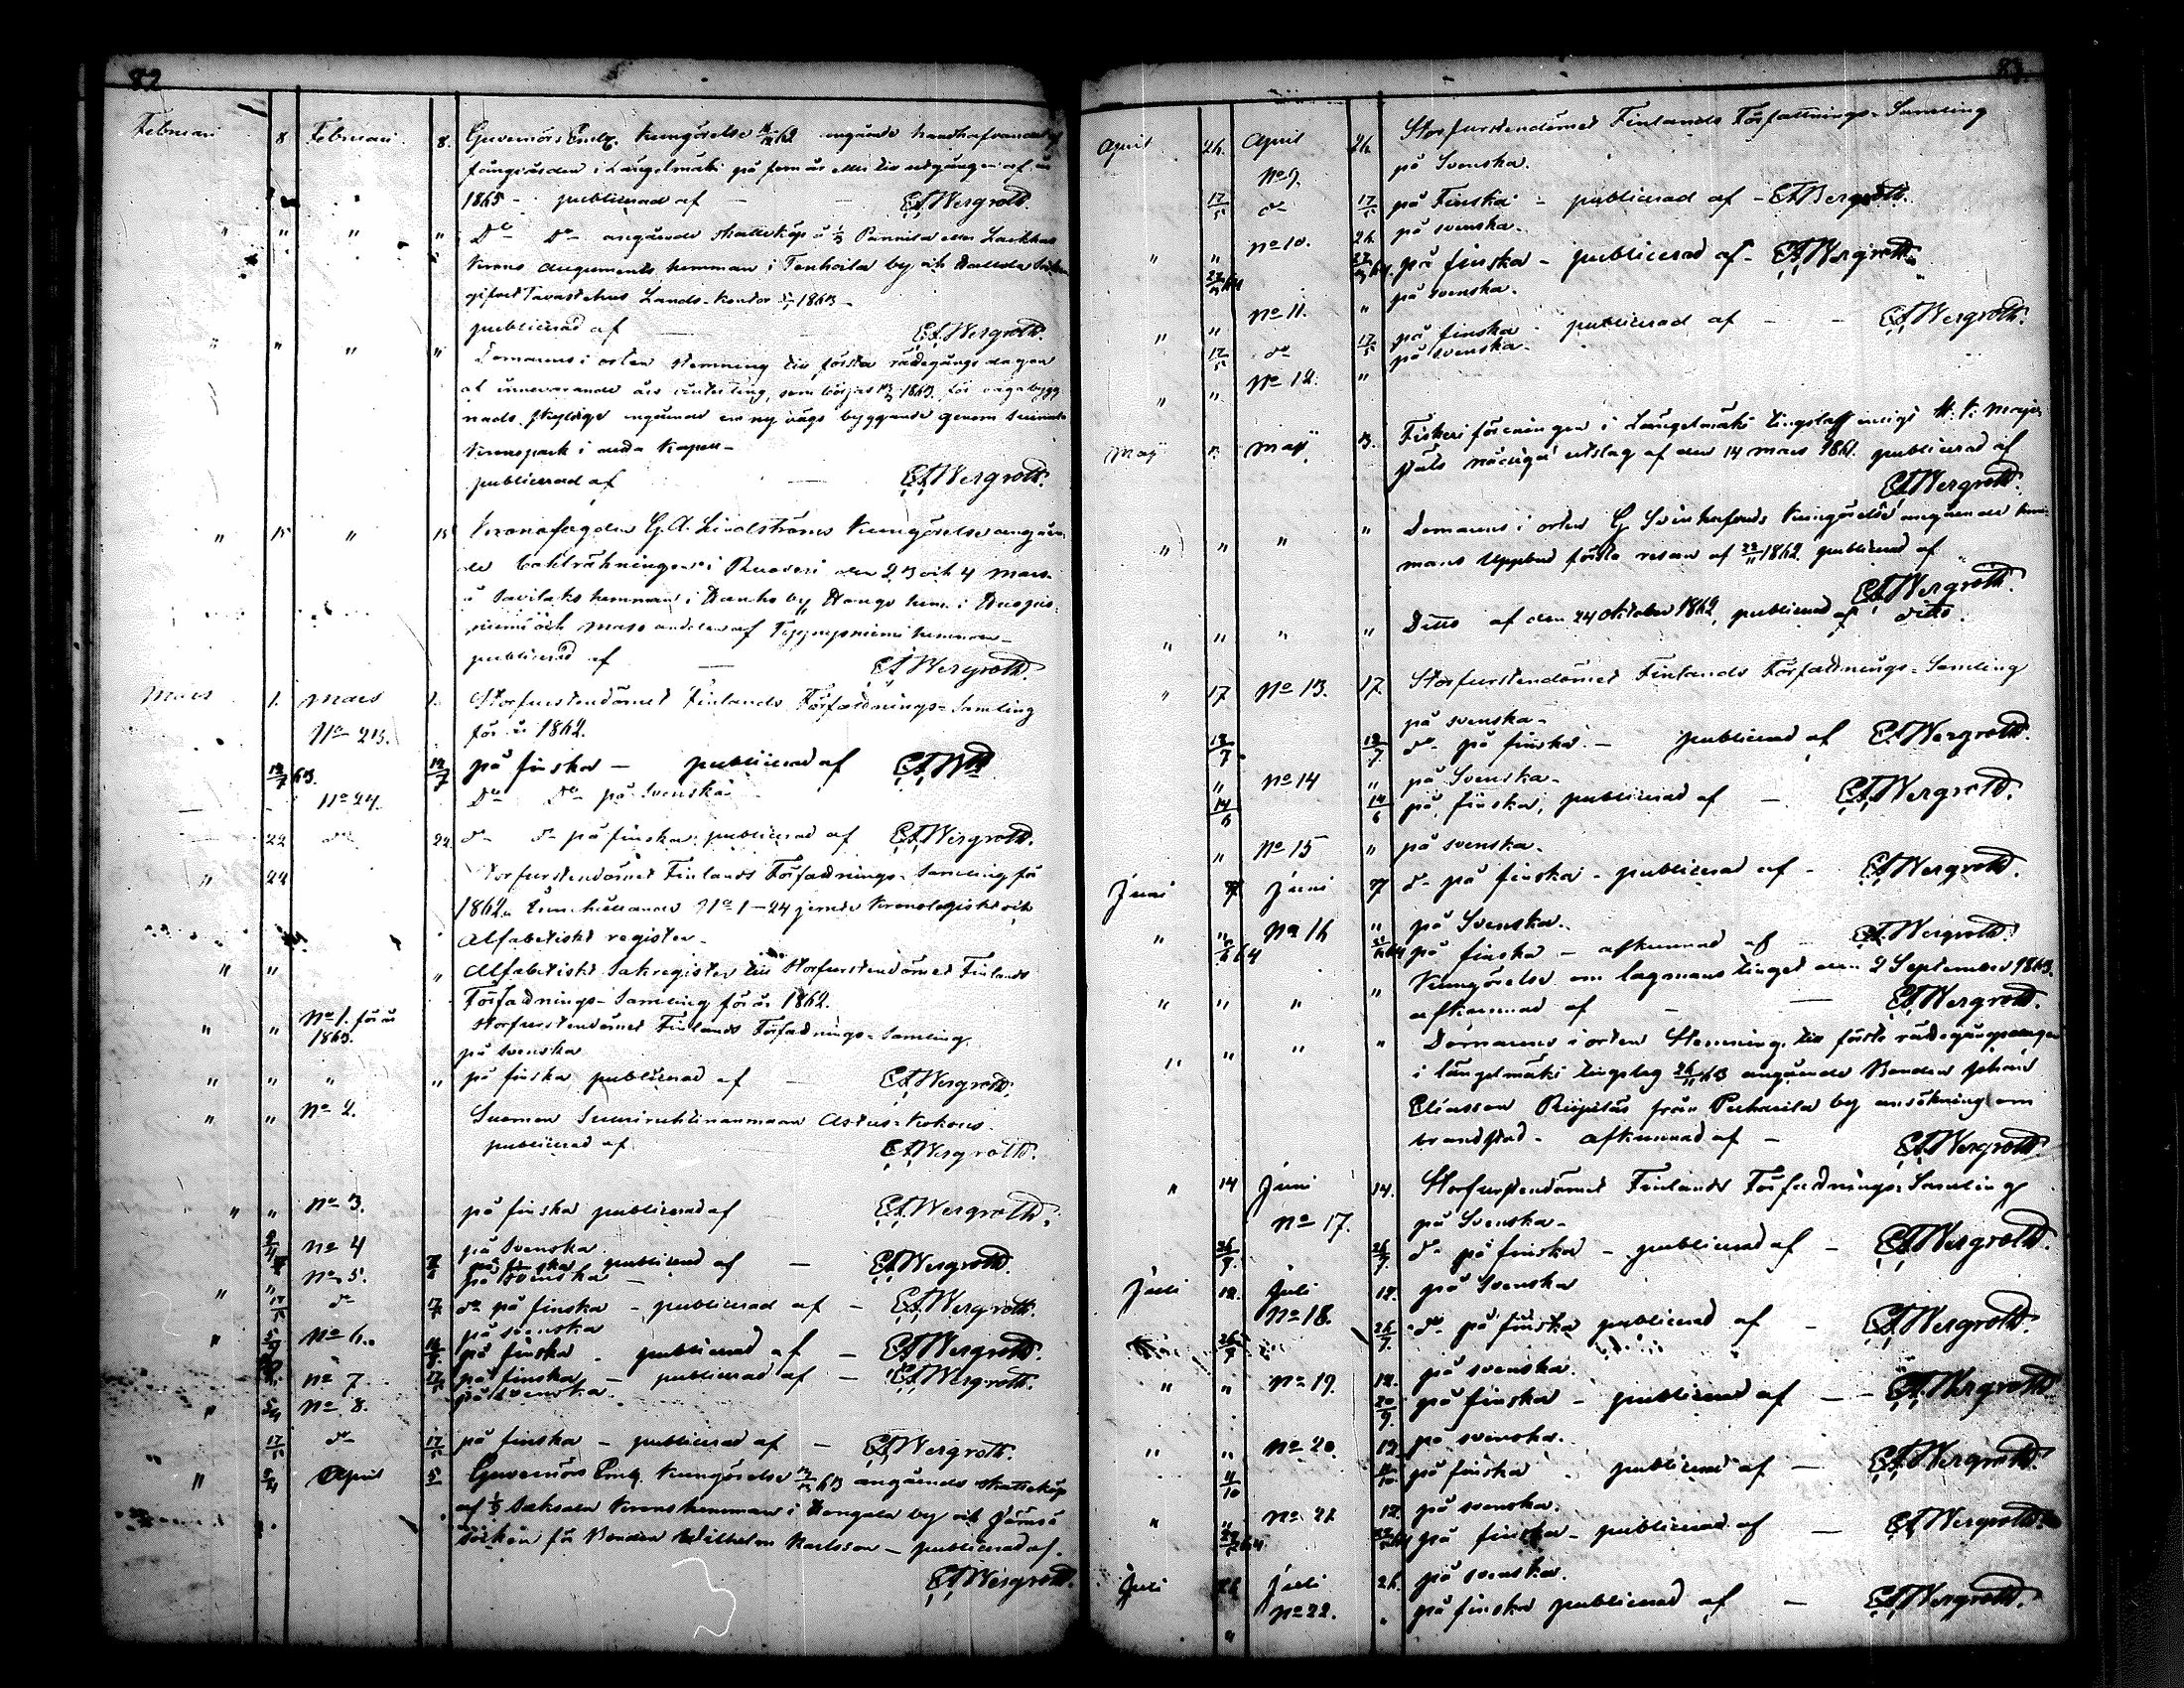 82
Februari 8 Februari 8. Guvernörs Emb. Kungörelse angående handhafvandet af
fångvården i Längelmäki på fem år eller till utgången af år
1865 - publicerad af - - E.A. Wergroth.
" " " " Do Do angående skatteköp å 1/3 Pannila eller Laikkas
Krons augments hemman i Tenhiala by och Socken
gifvet Tavastehus Lands-Kontor 1863 -
publicerad af - E.A. Wergroth.
" " " " Domarens i orten stemning till första rättegångs dagen
af innevarande års vinterting, som börjas 1863. för vägabygg
nads skyldige angående en ny vägs byggande genom
Kronopark i detta Kapell -
publicerad af - E.A. Wergroth.
" 15 " 15 Kronofogden G.A. Lindströms Kungörelse angåen
de i Ruovesi den 2 3 och 4 mars
å Savilaks hemman i by hem. i
niemi och af Teppoperniemi hemman -
publicerad af - E.A. Wergroth.
Mars 1. Mars 1. Storfurstendömet Finlands Författnings-Samling
No 23. för år 1862.
12/7 63. 12/7 på finska - publicerad af E.A. W
No 24. Do Do på Svenska
22 do 22 do do på finska. publicerad af E.A. Wergroth.
" 22 Storfurstendömet Finlands Författnings-Samling för
1862. innehållande No 1-24 jemte Kronologiskt och
Alfabetiskt register -
" " " Alfabetiskt Sakregister till Storfurstendömet Finlands
Författnings-Samling för år 1862.
" " No 1. för år Storfurstendömet Finlands Författnings-Samling.
1863. på svenska
" " " " på finska publicerad af - E.A. Wergroth.
" " No 2. Suomen Suuriruhtinanmaan Asetus-Kokous.
publicerad af E.A. Wergroth.
" " No 3. på finska publicerad af - E.A. Wergroth.
No 4 på Svenska.
på finska publicerad af - E.A. Wergroth.
No 5. på svenska -
" " 17/5 do 17/5 do på finska - publicerad af - E.A. Wergroth.
" No 6. på svenska
på finska - publicerad af - E.A. Wergroth.
No 7 17/5 på finska - publicerad af - E.A. Wergroth.
" 5/4 No 8. på svenska.
17/5 do 17/5 på finska - publicerad af - E.A. Wergroth.
" 5/4 April 5 Guvernörs Emb. Kungörelse 63 angående skatteköp
af 1/3 Saksala Kronohemman i Kongala by och Jämsä
Socken för Bonden Wilhelm Karlsson - publicerad af.
E.A. Wergroth.
83.
April 26. April 26. Storfurstendömet Finlands Författnings-Samling
No 9. på Svenska.
17/5 do 17/5 på Finska - publicerad af - E.A. Wergroth.
" " No 10. 26. på svenska.
på finska - publicerad af - E.A. Wergroth.
" " No 11. " på svenska.
17/5 do 17/5 på finska - publicerad af - - E.A. Wergroth.
" " No 12. " på svenska.
Maj 3. Maj 3. Fiskeriföreningen i Längelmäki tingslag enligt H. K. Maje
stäts nådiga utslag af den 14 mars 1861. publicerad af
E.A. Wergroth.
" " " " Domarens i orten G Svinhufvuds Kungörelse angående hem
mans Uppbud första resan af 22/11 1862. publicerad af
E.A. Wergroth.
" " " " Ditto af den 24 oktober 1862, publicerad af ditto.
" 17 No 13. 17. Storfurstendömet Finlands Författnings-Samling
på svenska -
12/7. 12/7 do på finska. - publicerad af E.A. Wergroth.
" No 14 " på Svenska -
14/6 14/6 på finska, publicerad af - E.A. Wergroth.
" No 15 " på svenska.
Juni 7 Juni 7 do på finska - publicerad af - E.A. Wergroth.
" " No 16 " på Svenska.
64 64 på finska - afkunnad af - E.A. Wergroth.
" " " " Kungörelse om lagmans tinget den 2 September 1863.
afkunnad af - - E.A. Wergroth.
" " " " Domarens i orten Stemning till första rättegångsdagen
i längelmäki tingslag 26/11 63 angående Bonden Johan
Eliasson Riipilas från Puharila by ansökning om
brandstod - afkunnad af - E.A. Wergroth.
" 14 Juni 14. Storfurstendömet Finlands Författnings-Samling
No 17. på Svenska -
26/7. 26/7. do på finska - publicerad af - E.A. Wergroth.
Juli 12. Juli 12. på Svenska
No 18.
26/7 26/7. do på finska publicerad af - E.A. Wergroth.
" " No 19. 12. på svenska.
20/9. på finska - publicerad af - - E.A. Wergroth.
" " No 20. 12. på svenska.
11/10 11/10 på finska - publicerad af - E.A. Wergroth.
" " No 21. 12. på svenska.
64. 64 på finska - publicerad af - E.A. Wergroth.
Juli 26 Juli 26. på svenska.
" No 22. " på finska publicerad af - E.A. Wergroth.